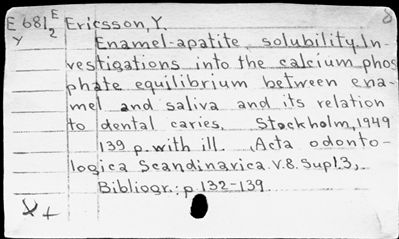 E 681 E Ericsson, Y.
y 2 Enamel-apatite solubility. In-
vestigations into the calcium phos
phate equilibrium between ena-
mel and saliva and its relation
to dental caries. Stockholm, 1949
139 p. with ill. (Acta odonto-
logica Scandinavica. V.8. Supl.3).
Bibliogr.: p 132-139